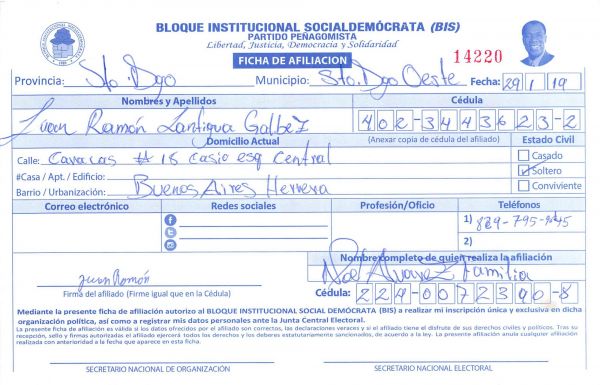 BLOQUE INSTITUCIONAL SOCIALDEMÓCRATA (BIS)
PARTIDO PEÑAGOMISTA
Libertad, Justicia, Democracia y Solidaridad
FICHA DE AFILIACION
14220
Provincia: Sto. Dgo Municipio: Sto. Dgo Oeste Fecha: 29/1/19
Nombres y Apellidos Cédula
Juan Ramón Lantigua 402-3443623-2
Domicilio Actual (Anexar copia de cédula del afiliado) Estado Civil
Calle: Caracas # 18 casi esq Central Casado
#Casa / Apt. / Edificio: Soltero
Barrio / Urbanización: Buenos Aires Herrera Conviviente
Correo electrónico Redes sociales Profesión/Oficio Teléfonos
1) 829-795-
2)
Nombre completo de quien realiza la afiliación
Noel Alvarez Familia
Juan Ramón
Firma del afiliado (Firme igual que en la Cédula) Cédula: 224-0072390-8
Mediante la presente ficha de afiliación autorizo al BLOQUE INSTITUCIONAL SOCIAL DEMÓCRATA (BIS) a realizar mi inscripción única y exclusiva en dicha
organización política, así como a registrar mis datos personales ante la Junta Central Electoral.
La presente ficha de afiliación es válida si los datos ofrecidos por el afiliado son correctos, las declaraciones veraces y si el afiliado tiene el disfrute de sus derechos civiles y políticos. Tras su
recepción, sello y firmas autorizadas el afiliado ejercerá todos los derechos y los deberes estatutariamente sancionados, de acuerdo a la ley. La presente afiliación anula cualquier afiliación
realizada con anterioridad a la fecha que aparece en esta ficha.
SECRETARIO NACIONAL DE ORGANIZACIÓN SECRETARIO NACIONAL ELECTORAL